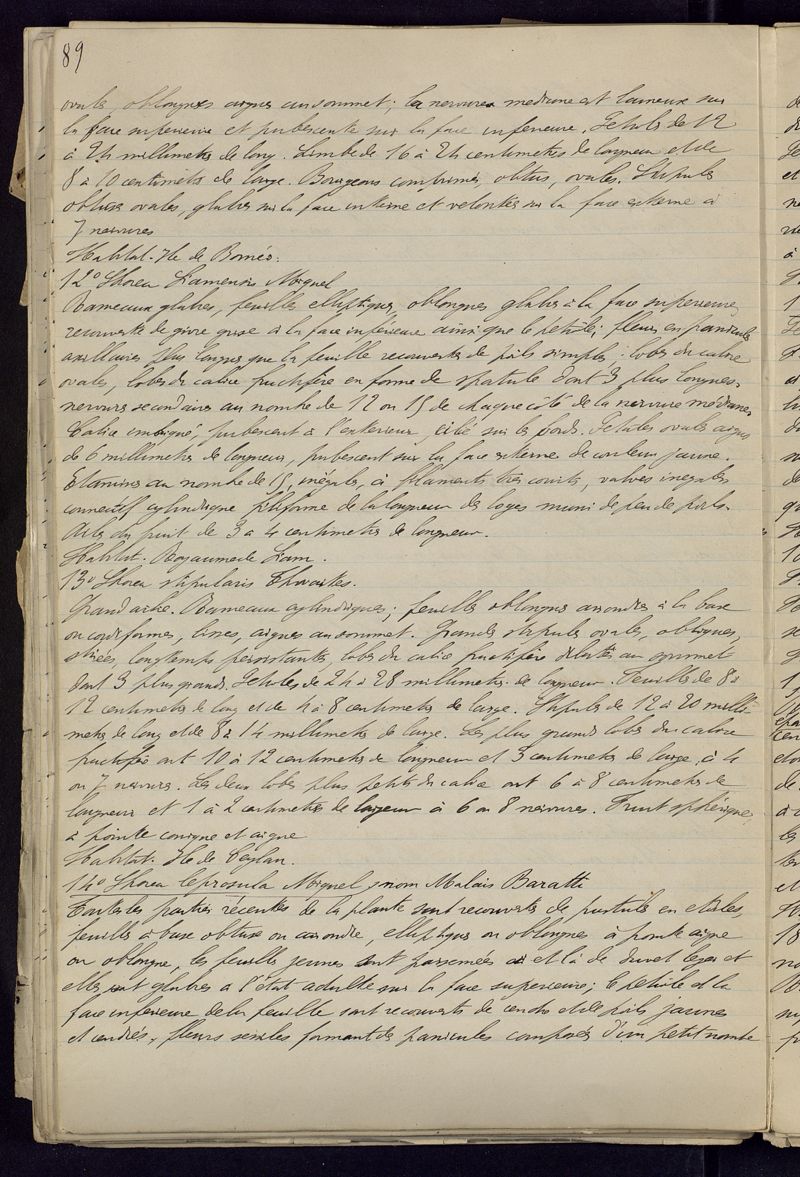 89
ovales, oblongues aigues au sommet; la nervure mediane est laineuse sur
la face superieure et pubescente sur la face inferieure. Petioles de 12
à 24 millimetres de long. Limbe de 16 à 24 centimetres de longueur et de
8 à 10 centimètres de large. Bourgeons comprimés, obtus, ovales. Stipules
obtuses ovales, glabres sur la face interne et veloutées sur la face externe à
7 nervures
Habitat. Ile de Bornéo.
12º Shorea Siamensis Miquel
Rameaux glabres, feuilles elliptiques, oblongues glabres à la face superieure,
recouverte de givre grise à la face inférieure ainsi que le pétiole; fleurs en panicules
axillaires plus longues que la feuille recouvertes de poils simples; lobes du calice
ovales, lobes du calice fructifère en forme de spatule dont 3 plus longues.
nervures secondaires au nombre de 12 ou 15 de chaque côté de la nervure médiane,
Calice imbriqué, pubescent à l'exterieur, cilié sur les bords. Petales ovales aigus
de 6 millimetres de longueur, pubescent sur la face externe de couleur jaune.
Etamines au nombre de 15, inégales, à filaments très courts, valves inegales
connectif cylindrique filiforme de la longueur des loges muni de peu de poils.
Ailes du fruit de 3 à 4 centimetres de longueur.
Habitat. Royaume de Siam.
13º Shorea stipularis Thwaites.
Grand arbre. Rameaux cylindriques; feuilles oblongues arrondies à la base
ou cordiformes, lisses, aigues au sommet. Grandes stipules ovales, obliques,
striées, longtemps persistantes, lobes du calice fructifère dilatés au sommet
dont 3 plus grands. Petioles de 24 à 28 millimetres de longueur. Feuilles de 8 à
12 centimetres de long et de 4 à 8 centimetres de large. Stipules de 12 à 20 milli-
metres de long et de 8 à 14 millimetres de large. Les plus grands lobes du calice
fructifère ont 10 à 12 centimetres de longueur et 3 centimetres de large, à 4
ou 7 nervures. Les deux lobes plus petits du calice ont 6 à 8 centimetres de
longueur et 1 à 2 centimetres de largeur à 6 ou 8 nervures. Fruit sphérique,
à pointe conique et aigue
Habitat. Ile de Ceylan.
14º Shorea leprosula Miquel, nom Malais Baratti
Toutes les parties récentes de la plante sont recouvertes de pustules en etoiles,
feuilles à base obtuse ou arrondie, elliptiques ou oblongues à pointe aigue
ou oblongue, les feuilles jeunes sont parsemées çà et là de duvet leger et
elles sont glabres à l'état adulte sur la face superieure; le pétiole et la
face inferieure de la feuille sont recouverts de cendre et de poils jaunes
et cendrés, fleurs sessiles formant des panicules composées d'un petit nombre